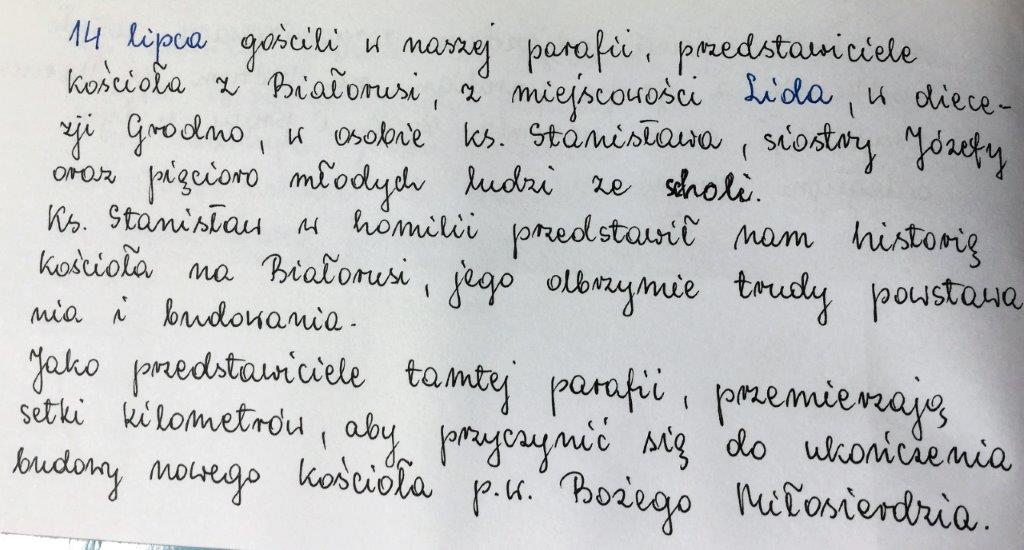 14 lipca gościli w naszej parafii, przedstawiciele
kościoła z Białorusi, z miejscowości Lida, w diece-
zji Grodno, w osobie ks. Stanisława, siostry Józefy
oraz pięcioro młodych ludzi ze scholi.
Ks. Stanisław w homilii przedstawił nam historię
kościoła na Białorusi, jego olbrzymie trudy powstawa
nia i budowania.
Jako przedstawiciele tamtej parafii, przemierzają
setki kilometrów, aby przyczynić się do ukończenia
budowy nowego kościoła p.w. Bożego Miłosierdzia.